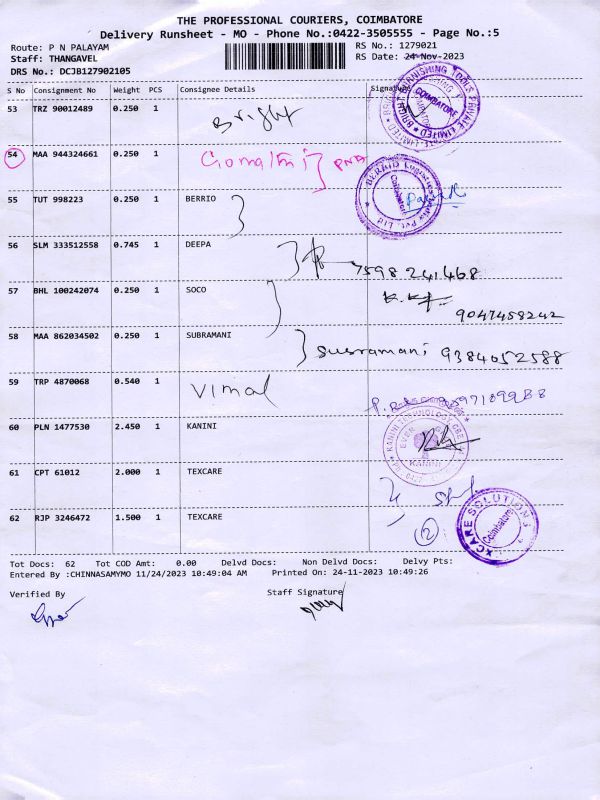 THE PROFESSIONAL COURIERS, COIMBATORE
Delivery Runsheet - MO - Phone No.:0422-3505555 - Page No.:5
Route: P N PALAYAM
RS No.: 1279021
Staff: THANGAVEL
RS Date: 24-Nov-2023
DRS No.: DCJB127902105
S No Consignment No Weight PCS Consignee Details Signature
53 TRZ 90012489 0.250 1 Bright
COIMBATORE
54 MAA 944324661 0.250 1 Gomathi
55 TUT 998223 0.250 1 BERRIO
56 SLM 333512558 0.745 1 DEEPA
7598 241468
57 BHL 100242074 0.250 1 SOCO
9047458242
58 MAA 862034502 0.250 1 SUBRAMANI
Subramani 9384052588
59 TRP 4870068 0.540 1 Vimal
60 PLN 1477530 2.450 1 KANINI
KANINI
61 CPT 61012 2.000 1 TEXCARE
62 RJP 3246472 1.500 1 TEXCARE
2
CARE SOLUTIONS
Coimbatore
Tot Docs: 62 Tot COD Amt: 0.00 Delvd Docs: Non Delvd Docs: Delvy Pts:
Entered By :CHINNASAMYMO 11/24/2023 10:49:04 AM Printed On: 24-11-2023 10:49:26
Verified By
Staff Signature